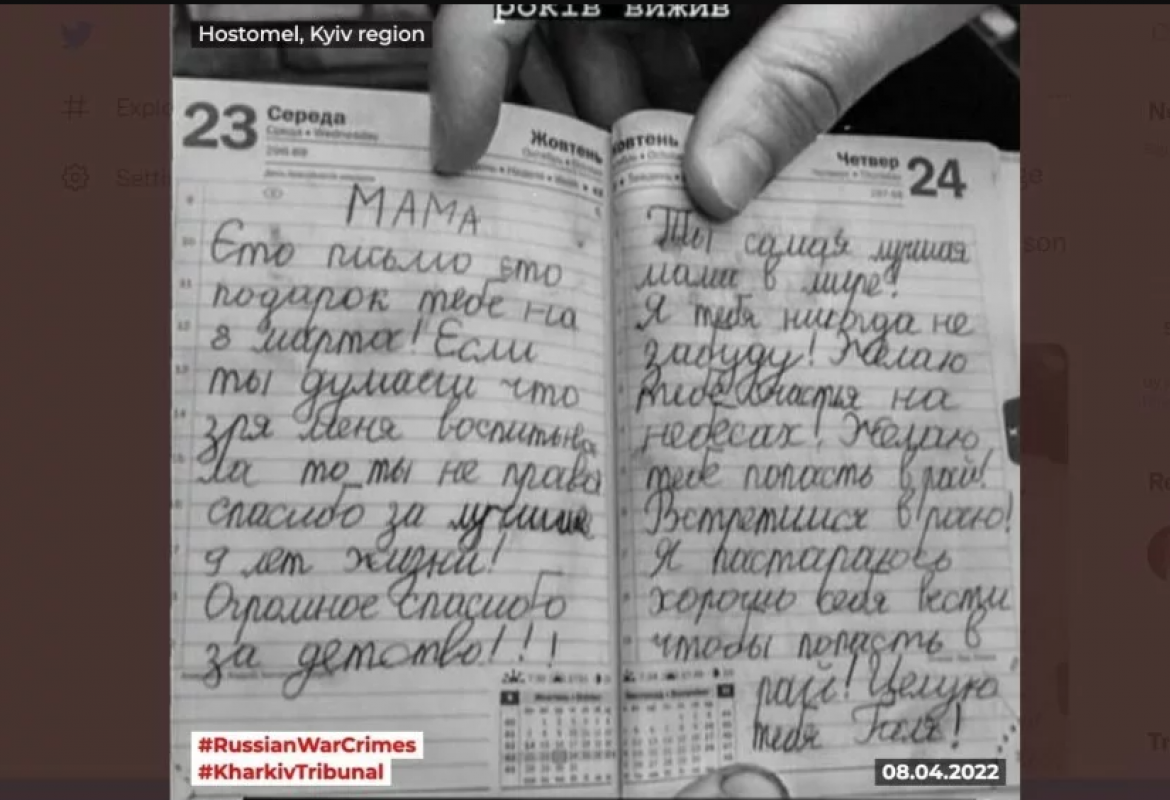 років вижив
Hostomel, Kyiv region
23 Середа
Жовтень
МАМА
Ето письмо ето
подарок тебе на
8 марта! Если
ты думаеш что
зря меня воспитыва
ла то ты не права
спасибо за лучшие
9 лет жизни!
Огромное спасибо
за детство!!!
Жовтень
Четвер 24
Ты самая лучшая
мама в мире!
Я тебя никогда не
забуду! Желаю
тебе счастья на
небесах! Желаю
тебе попасть в рай!
Встретимся в раю!
Я пастараюсь
хорошо себя вести
чтобы попасть в
рай! Целую
тебя Галя!
#RussianWarCrimes
#KharkivTribunal
08.04.2022